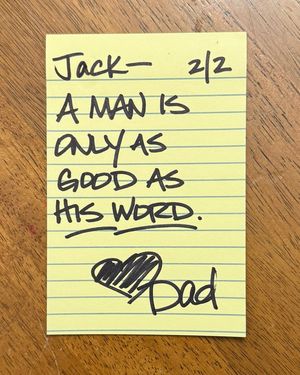 Jack— 2/2
A MAN IS
ONLY AS
GOOD AS
HIS WORD.
Dad